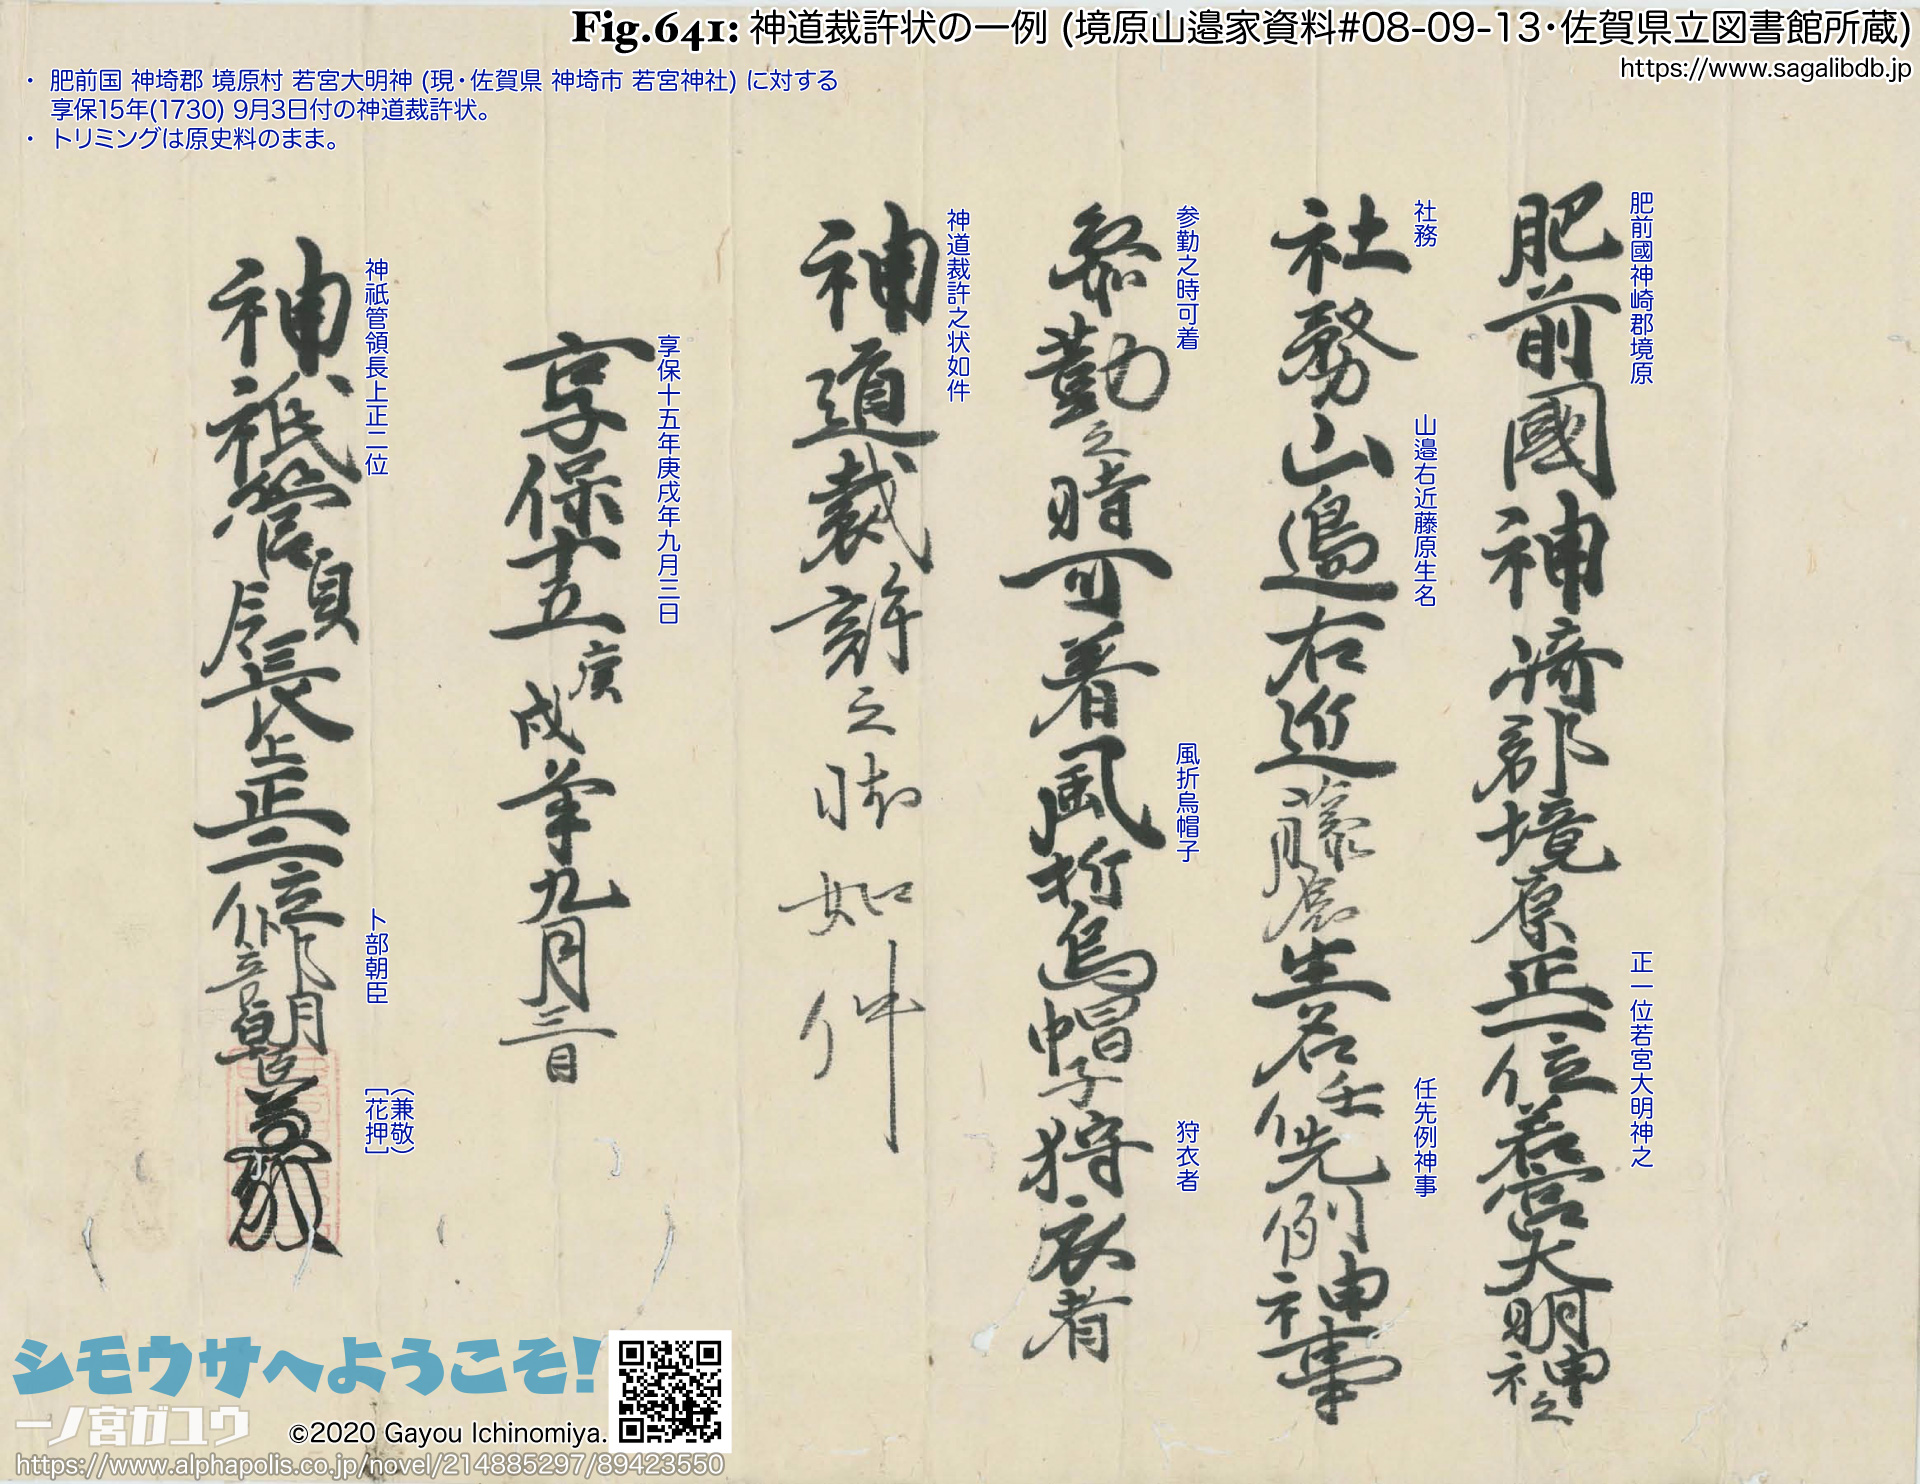 Fig.641: 神道裁許状の一例 (境原山邉家資料#08-09-13・佐賀県立図書館所蔵)
https://www.sagalibdb.jp
・ 肥前国 神埼郡 境原村 若宮大明神 (現・佐賀県 神埼市 若宮神社) に対する
享保15年(1730) 9月3日付の神道裁許状。
・ トリミングは原史料のまま。
肥前國神崎郡境原 正一位若宮大明神之
肥前國神崎郡境原正一位若宮大明神之
社務 山邉右近藤原生名 任先例神事
社務山邉右近藤原生名任先例神事
参勤之時可着 風折烏帽子 狩衣者
参勤之時可着風折烏帽子狩衣者
神道裁許之状如件
神道裁許之状如件
享保十五年庚戌年九月三日
享保十五庚戌年九月三日
神祇管領長上正二位 卜部朝臣 (兼敬) [花押]
神祇管領長上正二位卜部朝臣
シモウサへようこそ!
一ノ宮ガユウ
©2020 Gayou Ichinomiya.
https://www.alphapolis.co.jp/novel/214885297/89423550